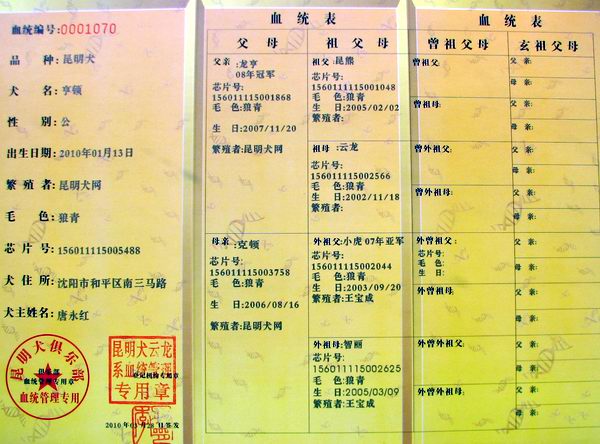 血统编号:0001070
品 种:昆明犬
犬 名:亨顿
性 别:公
出生日期:2010年01月13日
繁殖者:昆明犬网
毛 色:狼青
芯片号:156011115005488
犬住所:沈阳市和平区南三马路
犬主姓名:唐永红
昆明犬俱乐部
俱乐部
血统管理专用章
血统管理专用
昆明犬云龙
系血统管理
登记机构专用章
专用章
2010年03月28日签发
血统表
父母
祖父母
父亲:龙亨
08年冠军
芯片号:
156011115001868
毛 色:狼青
生 日:2007/11/20
繁殖者:昆明犬网
母亲:克顿
芯片号:
156011115003758
毛 色:狼青
生 日:2006/08/16
繁殖者:昆明犬网
祖父:昆熊
芯片号:
156011115001048
毛 色:狼青
生 日:2005/02/02
繁殖者:
祖母:云龙
芯片号:
156011115002566
毛 色:狼青
生 日:2002/11/18
繁殖者:
外祖父:小虎 07年亚军
芯片号:
156011115002044
毛 色:狼青
生 日:2003/09/20
繁殖者:王宝成
外祖母:智丽
芯片号:
156011115002625
毛 色:狼青
生 日:2005/03/09
繁殖者:王宝成
血统表
曾祖父母
玄祖父母
曾祖父:
曾祖母:
曾外祖父:
曾外祖母:
外曾祖父:
芯片号:
毛 色:
生 日:
外曾祖母:
外曾外祖父:
外曾外祖母:
父亲:
母亲:
父亲:
母亲:
父亲:
母亲:
父亲:
母亲:
父亲:
母亲:
父亲:
母亲:
父亲:
母亲:
父亲:
母亲: